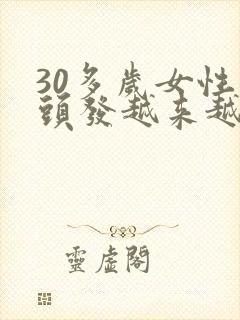 30多歲女性
頭發越来越
靈虛閣